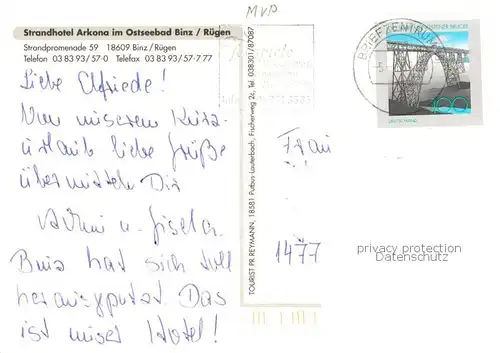 MVP
Strandhotel Arkona im Ostseebad Binz / Rügen
Strandpromenade 59 18609 Binz / Rügen
Telefon 03 83 93/57-0 Telefax 03 83 93/57-7 77
Liebe Elfriede!
Von unserem Kurz-
urlaub liebe Grüße
übermitteln Dir
u. Gisela.
Binz hat sich toll
herausgeputzt Das
ist unser Hotel!
TOURIST PR REYMANN, 18581 Putbus-Lauterbach, Fischerweg 2c, Tel. 038301/87087
BRIEFZENTRUM
100
DEUTSCHLAND
Frau
1477
privacy protection
Datenschutz